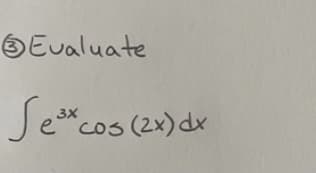 ③ Evaluate
∫e³ˣcos(2x)dx